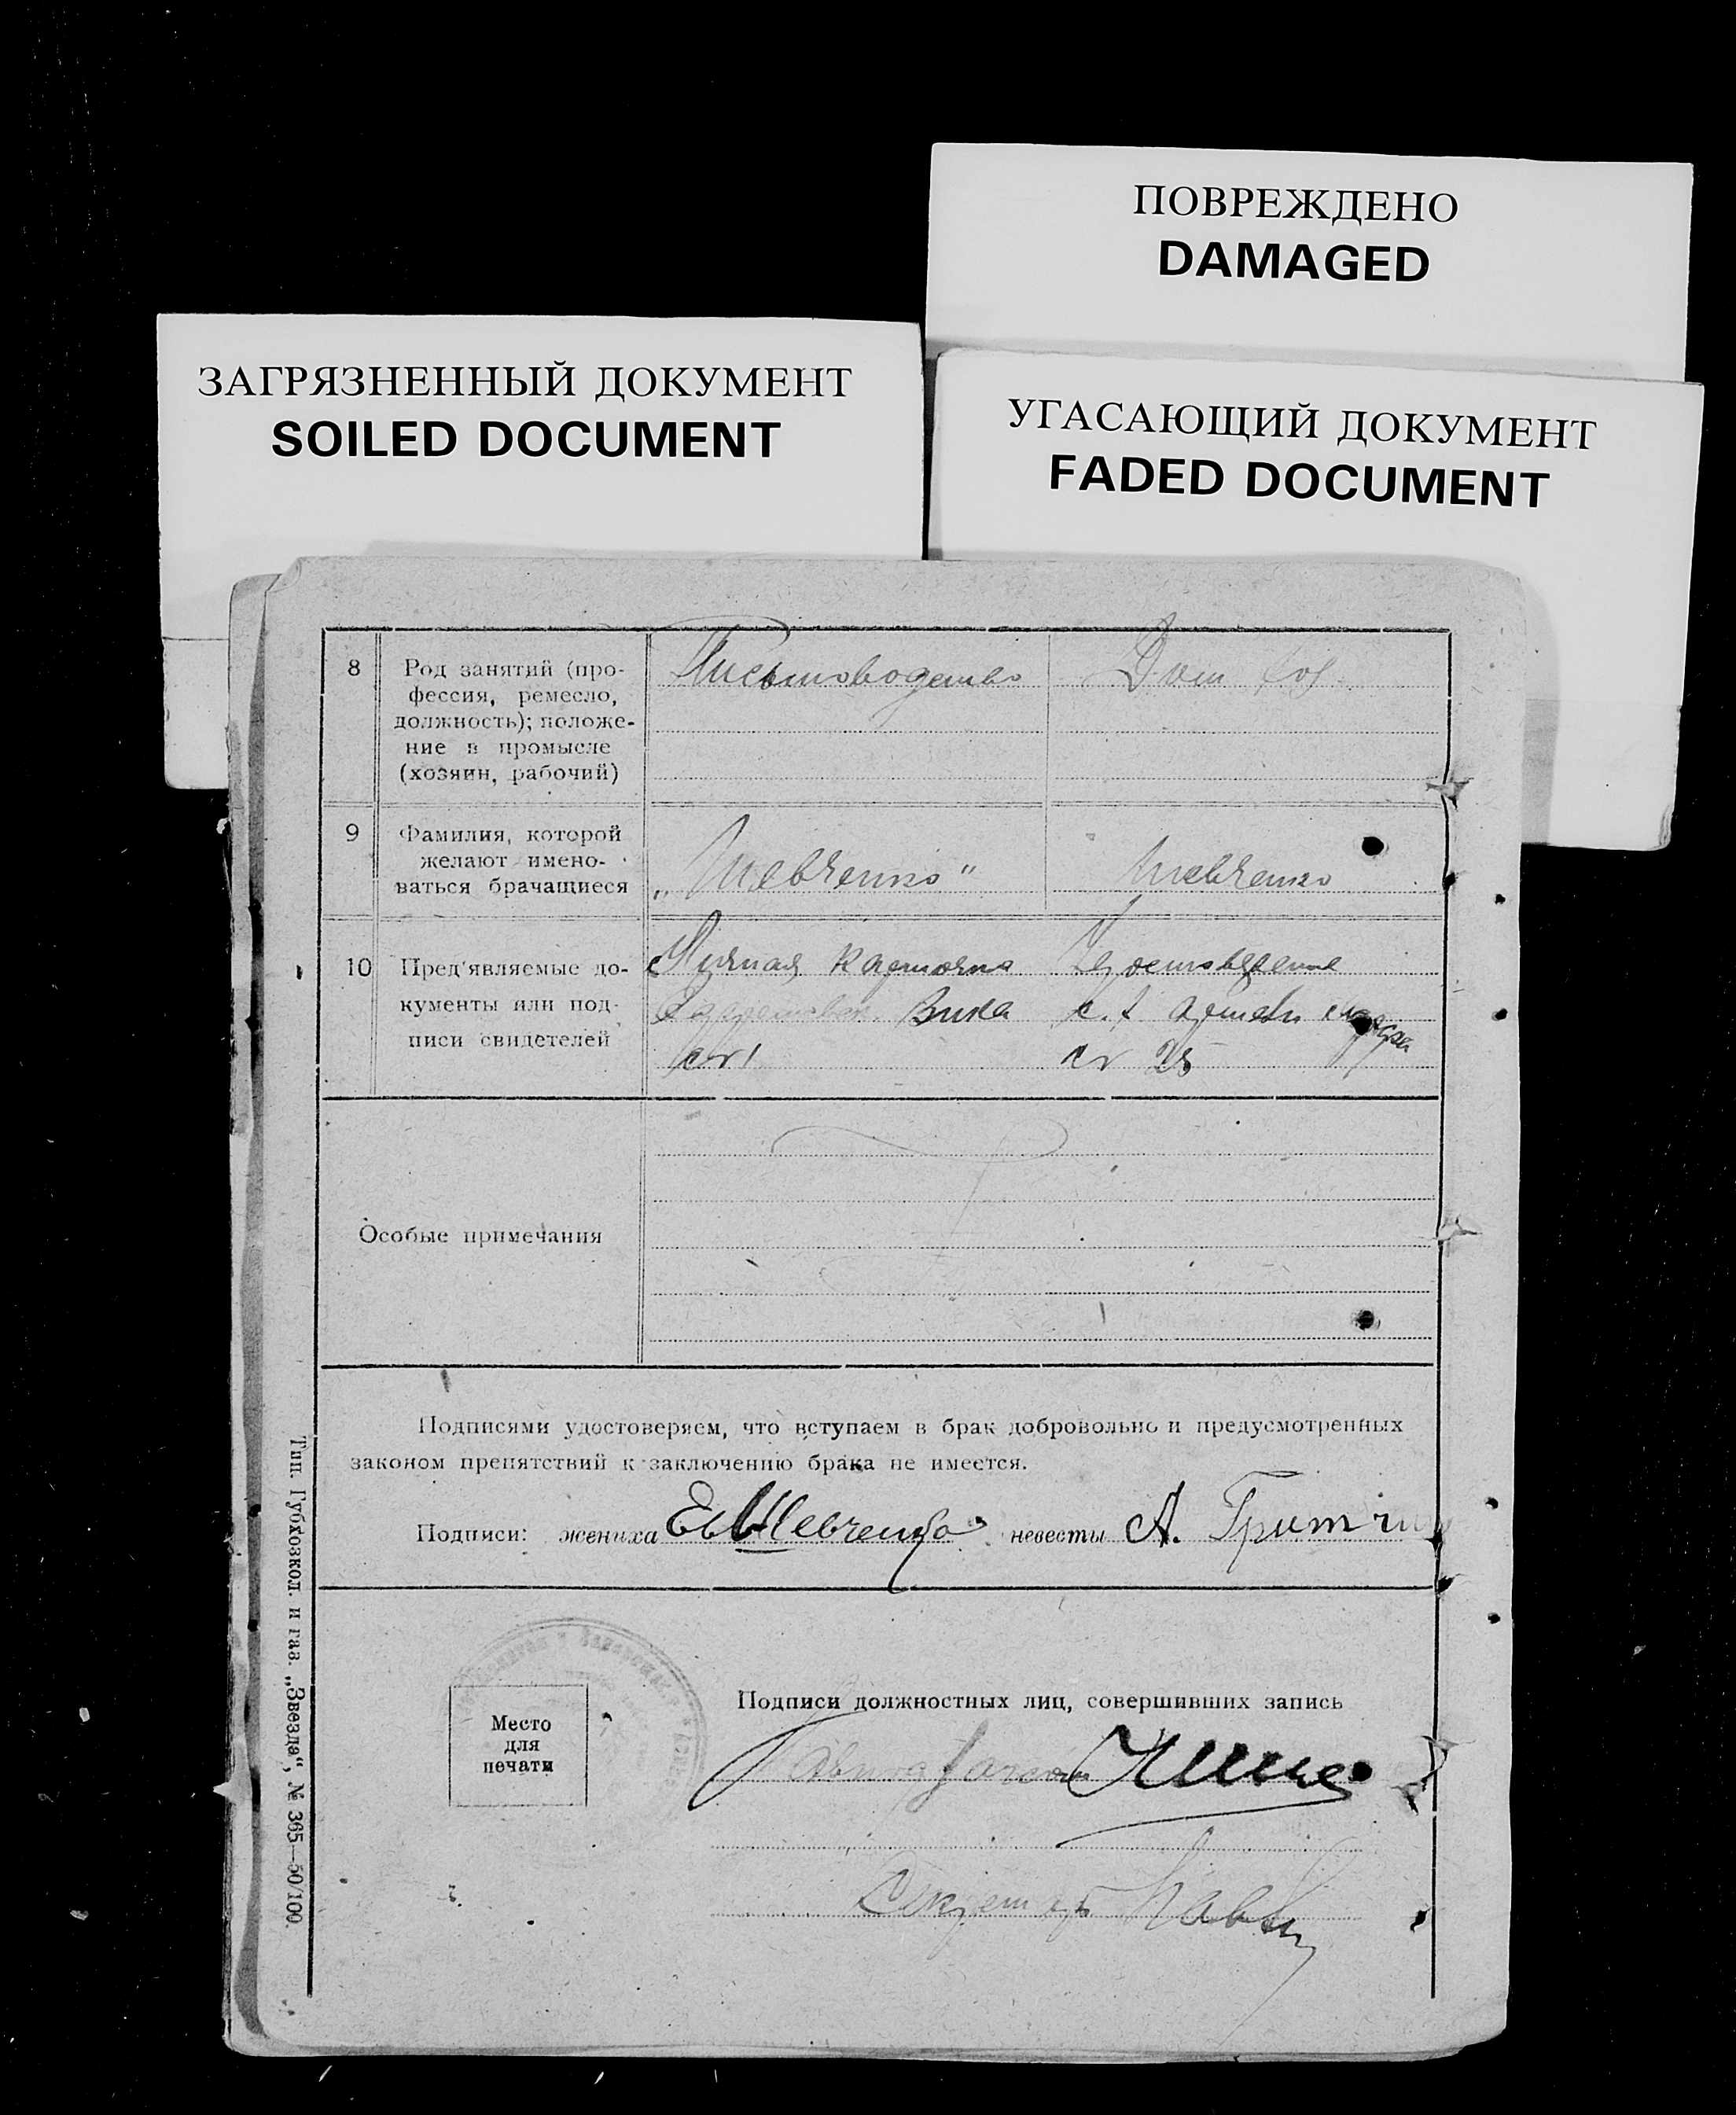 ПОВРЕЖДЕНО
DAMAGED
ЗАГРЯЗНЕННЫЙ ДОКУМЕНТ
SOILED DOCUMENT
УГАСАЮЩИЙ ДОКУМЕНТ
FADED DOCUMENT
8
Род занятий (про-
фессия, ремесло,
должность); положе-
ние в промысле
(хозяин, рабочий)
Письмоводство
Дом хоз
9
Фамилия, которой
желают имено-
ваться брачащиеся
„Шевченко"
Шевченко
10
Пред'являемые до-
кументы или под-
писи свидетелей
Личная карточка
Вика
Удостоверение
25
Особые примечания
Подписями удостоверяем, что вступаем в брак добровольно и предусмотренных
законом препятствий к заключению брака не имеется.
Подписи: жениха Шевченко невесты А.
Место
для
печати
Подписи должностных лиц, совершивших запись
Секретарь
Тип. Губхозкол. и газ. „Звезда", № 365—50/100.